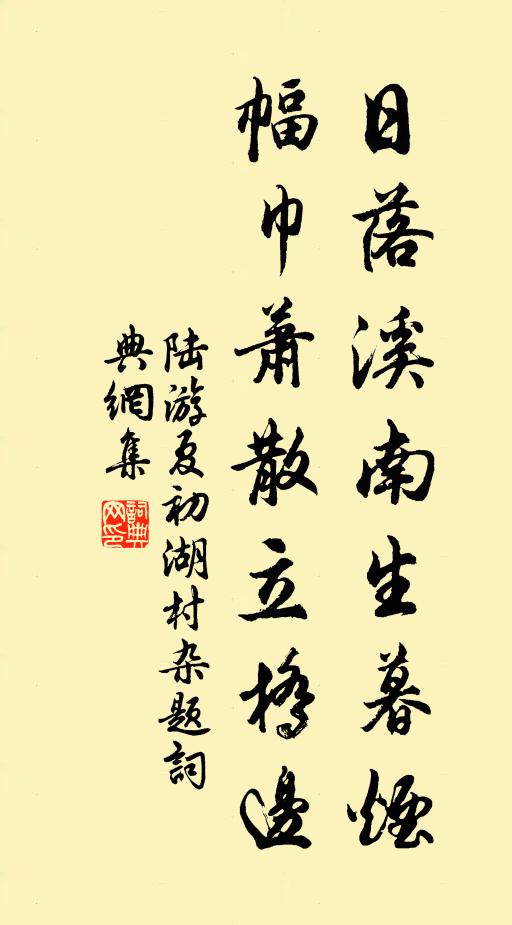 日落溪南生暮煙
幅巾蕭散立橋邊
陆游夏初湖村杂题詞
典網集
詞典网印